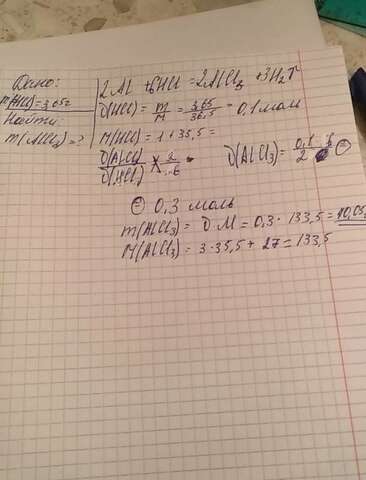 Дано:
m(HCl)=3,65г
Найти:
m(AlCl₃)=?
2Al + 6HCl = 2AlCl₃ + 3H₂↑
ϑ(HCl) = m/M = 3,65/36,5 = 0,1 моль
M(HCl) = 1+35,5 =
ϑ(AlCl₃)/ϑ(HCl) 2/6
ϑ(AlCl₃) = 0,1·6/2 =
= 0,3 моль
m(AlCl₃) = ϑ·M = 0,3·133,5 = 40,05
M(AlCl₃) = 3·35,5 + 27 = 133,5